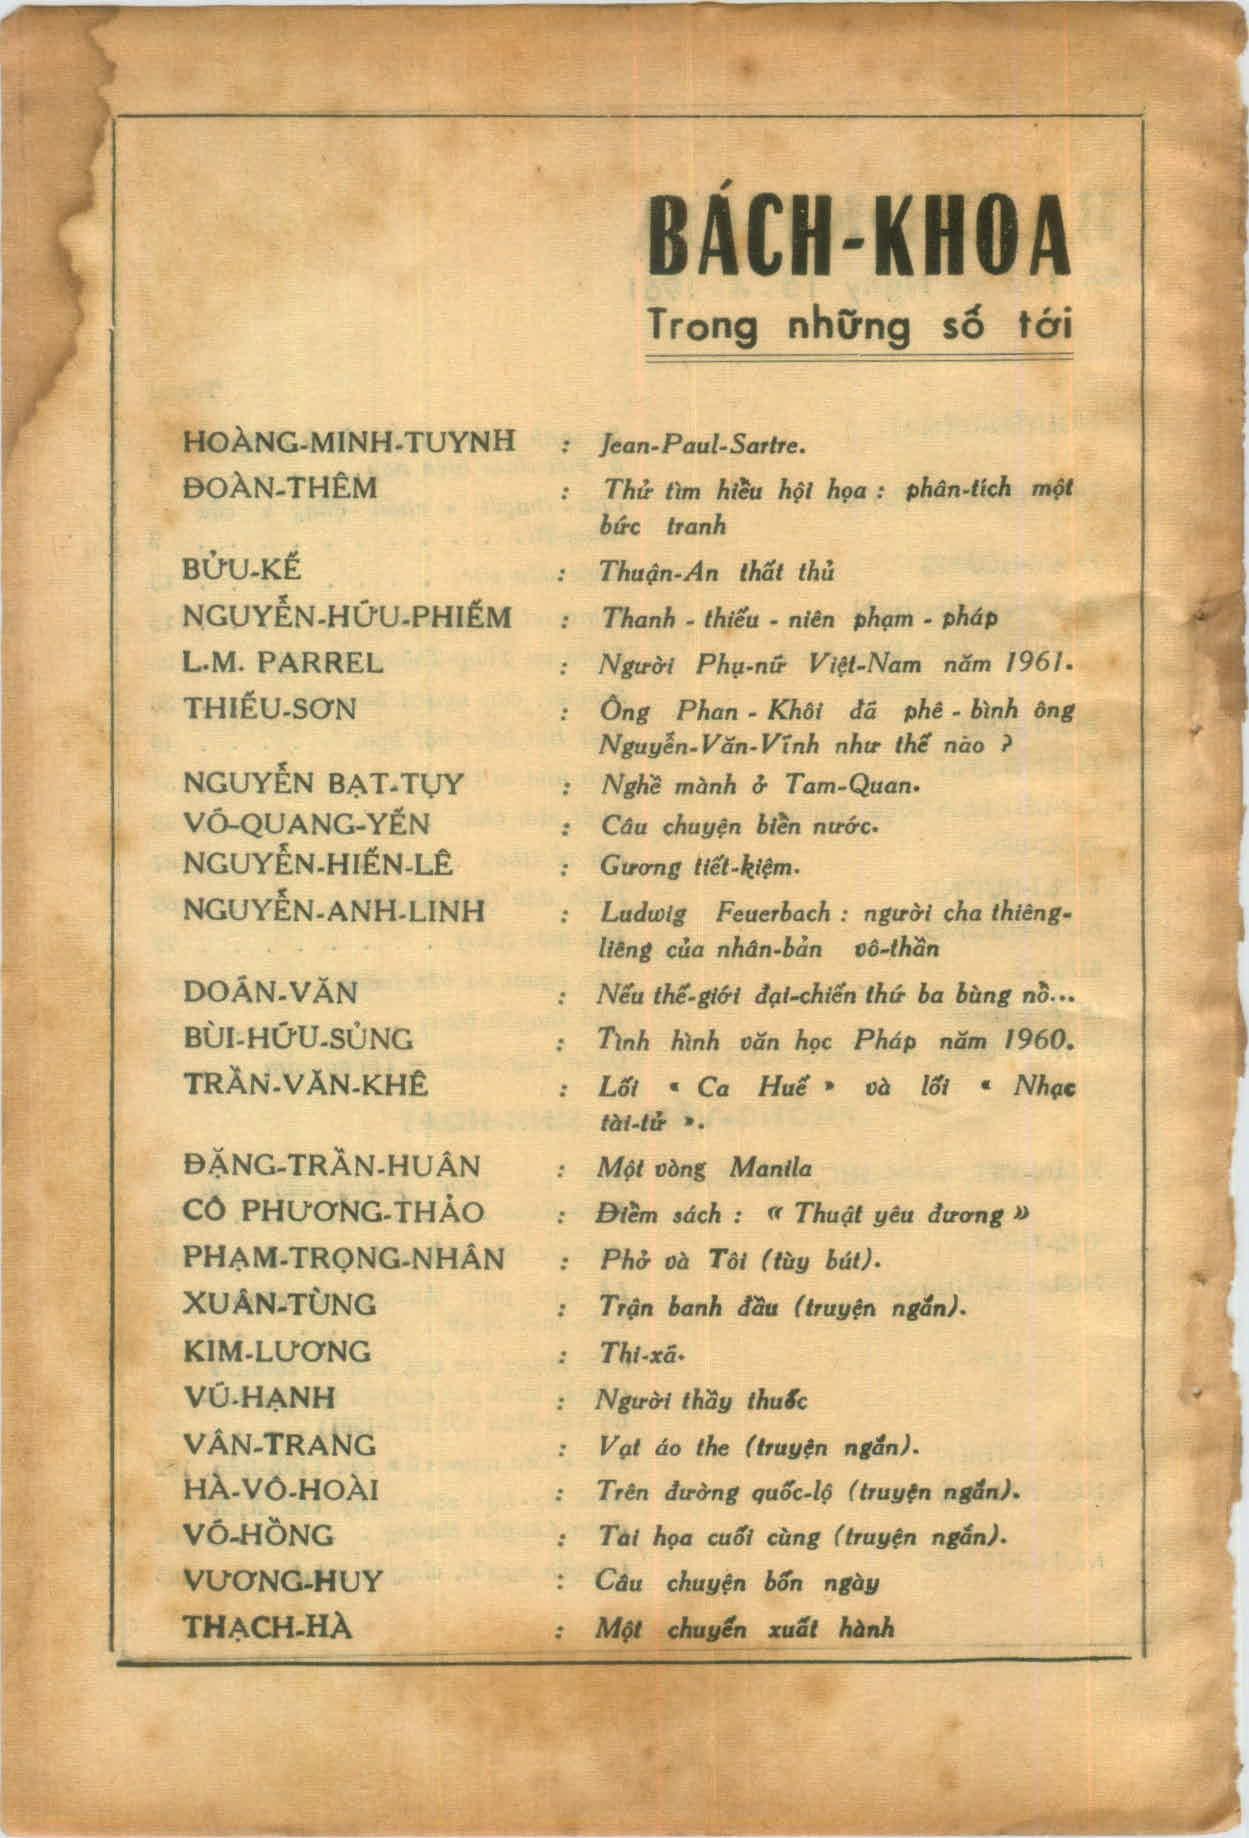 BÁCH-KHOA
Trong những số tới
HOÀNG-MINH-TUYNH : Jean-Paul-Sartre.
ĐOÀN-THÊM : Thử tìm hiểu hội họa : phân-tích một
bức tranh
BỬU-KẾ : Thuận-An thất thủ
NGUYỄN-HỮU-PHIẾM : Thanh - thiếu - niên phạm - pháp
L.M. PARREL : Người Phụ-nữ Việt-Nam năm 1961.
THIẾU-SƠN : Ông Phan - Khôi đã phê - bình ông
Nguyễn-Văn-Vĩnh như thế nào ?
NGUYỄN BẠT-TỤY : Nghề mành ở Tam-Quan.
VÕ-QUANG-YẾN : Câu chuyện biển nước.
NGUYỄN-HIẾN-LÊ : Gương tiết-kiệm.
NGUYỄN-ANH-LINH : Ludwig Feuerbach : người cha thiêng-
liêng của nhân-bản vô-thần
DOÃN-VĂN : Nếu thế-giới đại-chiến thứ ba bùng nổ...
BÙI-HỮU-SỦNG : Tình hình văn học Pháp năm 1960.
TRẦN-VĂN-KHÊ : Lối « Ca Huế » và lối « Nhạc
tài-tử ».
ĐẶNG-TRẦN-HUÂN : Một vòng Manila
CÔ PHƯƠNG-THẢO : Điểm sách : « Thuật yêu đương »
PHẠM-TRỌNG-NHÂN : Phở và Tôi (tùy bút).
XUÂN-TÙNG : Trận banh đầu (truyện ngắn).
KIM-LƯƠNG : Thi-xã.
VŨ-HẠNH : Người thầy thuốc
VÂN-TRANG : Vạt áo the (truyện ngắn).
HÀ-VÔ-HOÀI : Trên đường quốc-lộ (truyện ngắn).
VÕ-HỒNG : Tai họa cuối cùng (truyện ngắn).
VƯƠNG-HUY : Câu chuyện bốn ngày
THẠCH-HÀ : Một chuyến xuất hành